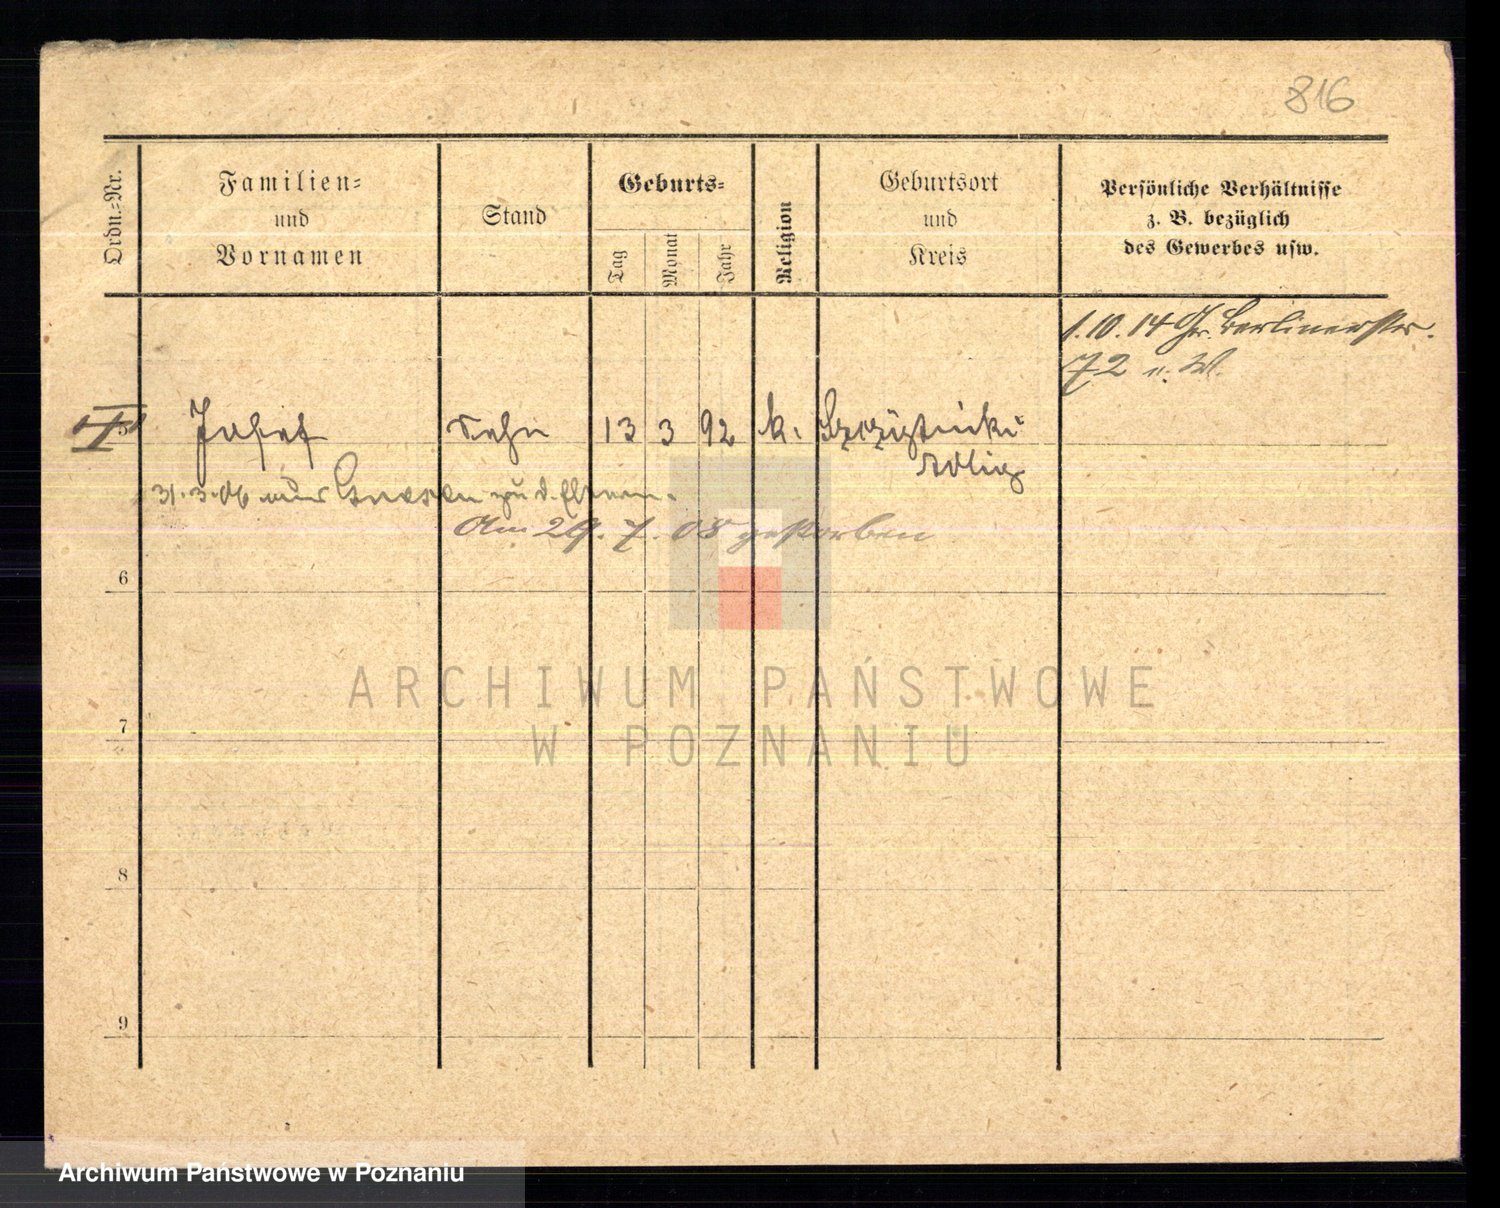 816
Ordn.-Nr.
Familien-
und
Vornamen
Stand
Geburts-
Tag
Monat
Jahr
Religion
Geburtsort
und
Kreis
Persönliche Verhältnisse
z. B. bezüglich
des Gewerbes usw.
1.10.14 Gr. Berlinerstr.
72 u. W.
5 Josef Sohn 13 3 92 k.
31.3.06 aus Gnesen zu d. Eltern.
Am 29. 7. 08 gestorben
6
7
8
9
ARCHIWUM PAŃSTWOWE
W POZNANIU
Archiwum Państwowe w Poznaniu